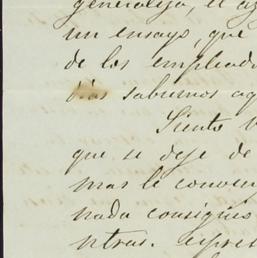 generaliza, el az
un ensayo, que
de los emplead
días sabremos ag
Siento
que se deje de
mas le conven
nada consiguio
ntras. espres